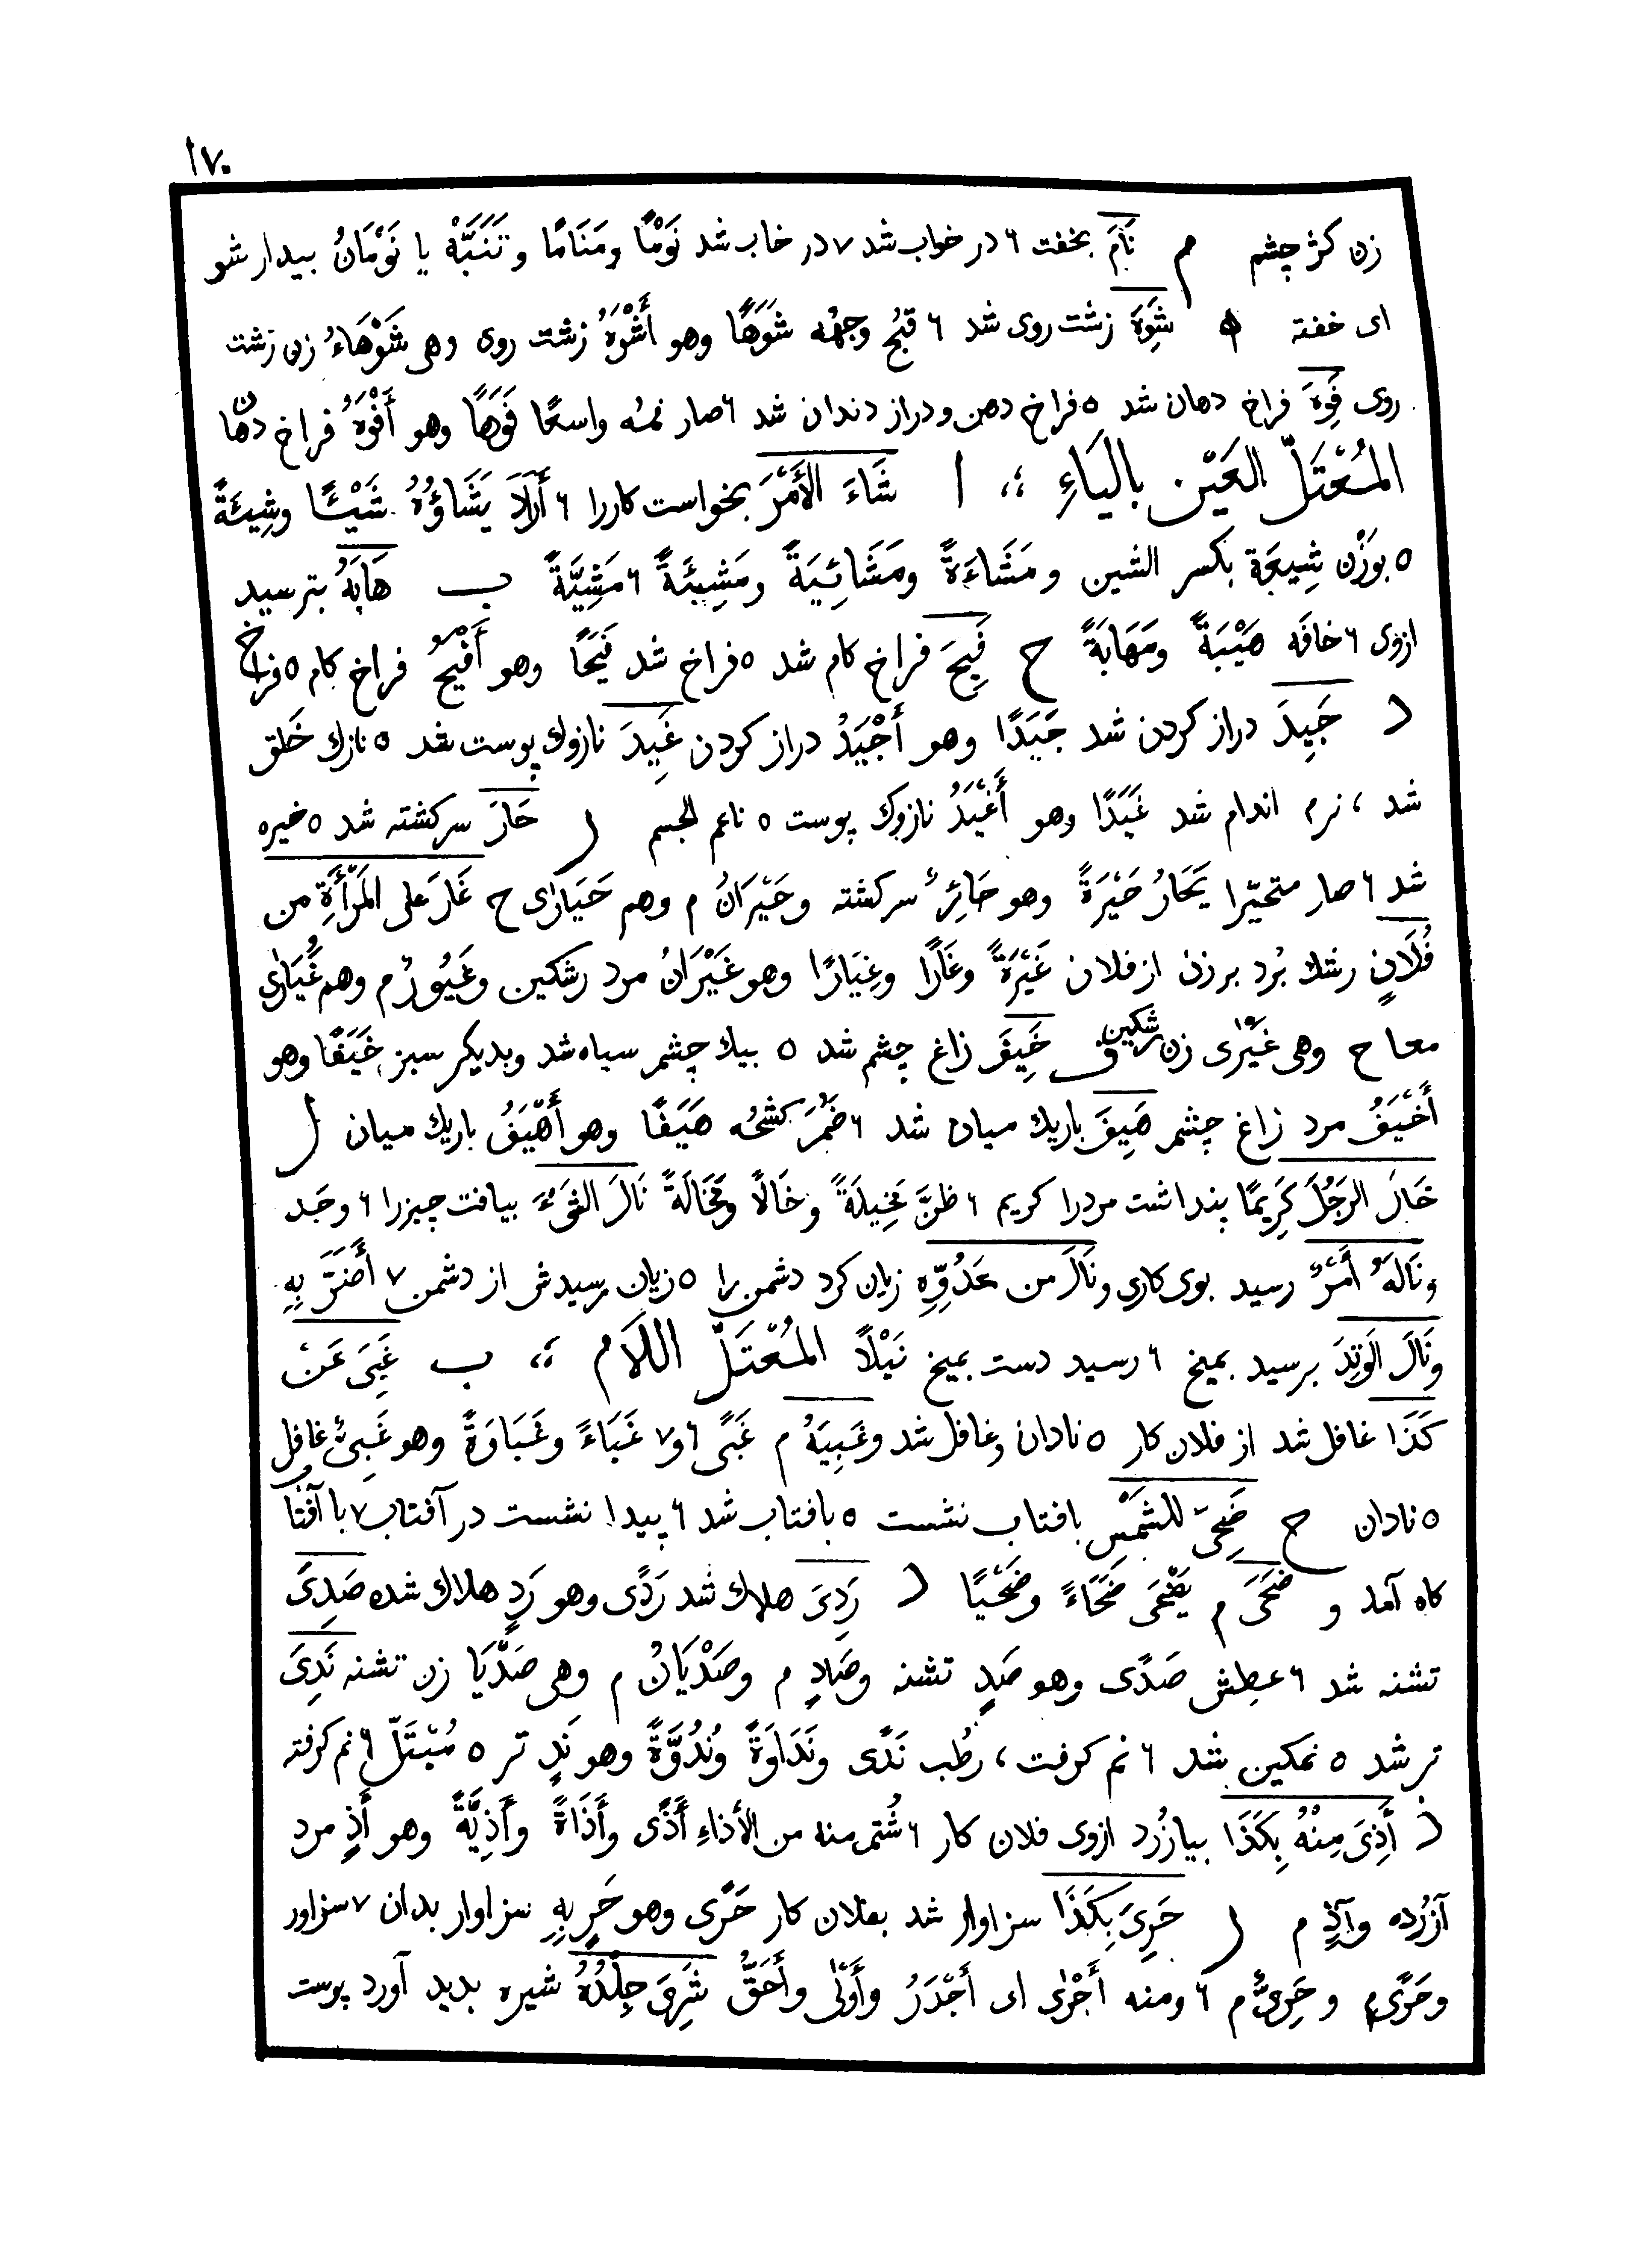 ١٧٠
زن کژ چشم م نَامَ بخفت ٦ در خواب شد ٧ در خاب شد نَوْمًا ومَنَامًا و تَنَبَّهْ يا نَوْمَانُ بیدار شو
ای خفته ه شَوِهَ زشت روی شد ٦ قبُح وجهُه شَوَهًا وهو أَشْوَهُ زشت روی وهی شَوْهَاءُ زن زشت
روی فَوِهَ فراخ دهان شد ٥ فراخ دهن و دراز دندان شد ٦ صار فمُه واسعًا فَوَهًا وهو أَفْوَهُ فراخ دهان
المُعْتَلّ العَيْن بِاليَاءِ ؛، ا شَاءَ الأَمْرَ بخواست کاررا ٦ أَرَادَ يَشَاؤُهُ شَيْئًا وشِيئَةً
٥ بوَزْن شِيعَة بكسر الشين ومَشَاءَةً ومَشَائِيَةً ومَشِيئَةً ٦ مَشِيَّةً ب هَابَهُ بترسید
ازوی ٦ خافَه هَيْبَةً ومَهَابَةً ح فَيِحَ فراخ کام شد ٥ فراخ شد فَيَحًا وهو أَفْيَحُ فراخ کام ٥ فراخ
د جَيِدَ دراز گردن شد جَيَدًا وهو أَجْيَدُ دراز گردن غَيِدَ نازوك پوست شد ٥ نازك خَلق
شد ، نرم اندام شد غَيَدًا وهو أَغْيَدُ نازوك پوست ٥ ناعم الجسم ر حَارَ سرکشته شد ٥ خیره
شد ٦ صار متحيّرا يَحَارُ حَيْرَةً وهو حَائِرٌ سرکشته وحَيْرَانُ م وهم حَيَارَى ح غَارَ عَلى المَرْأَةِ من
فُلَانٍ رشك بُرد بر زن از فلان غَيْرَةً وغَارًا وغِيَارًا وهو غَيْرَانُ مرد رشکین وغَيُورٌ م وهم غُيَارَى
معا ح وهی غَيْرَى زن رشکین ف خَيِفَ زاغ چشم شد ٥ بیك چشم سیاه شد وبدیکر سبز خَيَفًا وهو
أَخْيَفُ مرد زاغ چشم هَيِفَ باریك میان شد ٦ ضَمُرَ كشحُه هَيَفًا وهو أَهْيَفُ باریك میان ل
خَالَ الرَجُلَ كَرِيمًا پنداشت مردرا کریم ٦ ظنَّ مَخِيلَةً وخَالًا ومَخَالَةً نَالَ الشَيْءَ بیافت چیزرا ٦ وجَد
ونَالَهُ أَمْرٌ رسید بوی کاری ونَالَ من عَدُوِّهِ زیان کرد دشمن را ٥ زیان رسیدش از دشمن ٧ أَضَرَّ بِهِ
ونَالَ الوَتِدَ برسید بمیخ ٦ رسید دست بمیخ نَيْلًا المُعْتَلّ اللَام ؛، ب غَبِيَ عَنْ
كَذَا غافل شد از فلان کار ٥ نادان وغافل شد وغَبِيَهُ م غَبًى ٦ و٧ غَبَاءً وغَبَاوَةً وهو غَبِيٌّ غافل
٥ نادان ح ضَحِيَ للشَمْسِ بافتاب نشست ٥ بافتاب شد ٦ پیدا نشست در آفتاب ٧ با آفتا
کاه آمد و ضَحَى م يَضْحَى ضَحَاءً وضَحْيًا د رَدِيَ هلاك شد رَدًى وهو رَدٍ هلاك شده صَدِيَ
تشنه شد ٦ عطِش صَدًى وهو صَدٍ تشنه وصَادٍ م وصَدْيَانُ م وهی صَدْيَا زن تشنه نَدِيَ
تر شد ٥ نمکین شد ٦ نم کرفت ، رطُب نَدًى ونَدَاوَةً ونُدُوَّةً وهو نَدٍ تر ٥ مُبْتَلّ ٦ نم کرفته
ذ أَذِيَ مِنْهُ بِكَذَا بیازُرد ازوی فلان کار ٦ شُتم منه من الأذاءِ أَذًى وأَذَاةً وأَذِيَّةً وهو أَذٍ مرد
آزُرده وآذٍ م ر حَرِيَ بِكَذَا سزاوار شد بفلان کار حَرًى وهو حَرٍ بِهِ سزاوار بدان ٧ سزاور
وحَرًى م وحَرِيٌّ م ٦ ومنه أَحْرَى ای أَجْدَرُ وأَوْلَى وأَحَقُّ شَرِيَ جِلْدُهُ شیره بدید آورد پوست